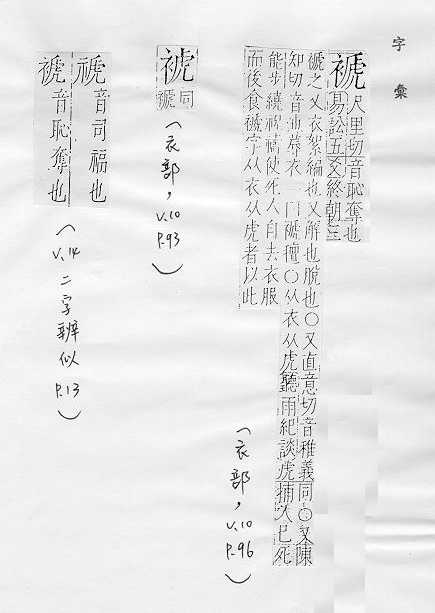 字彙
褫 尺里切音恥奪也
易訟五爻終朝三
褫之又衣絮編也又解也脫也○又直意切音稚義同○又陳
知切音池蓐衣一曰褫氊○从衣从虒聽雨紀談虎捕人已死
能步繞祝禱使死人自去衣服
而後食褫字从衣从虎者以此
（衣部，V.10 P.96）
裭 同
褫
（衣部，V.10 P.93）
禠 音司福也
褫 音恥奪也
（V.14 二字辨似 P.13）